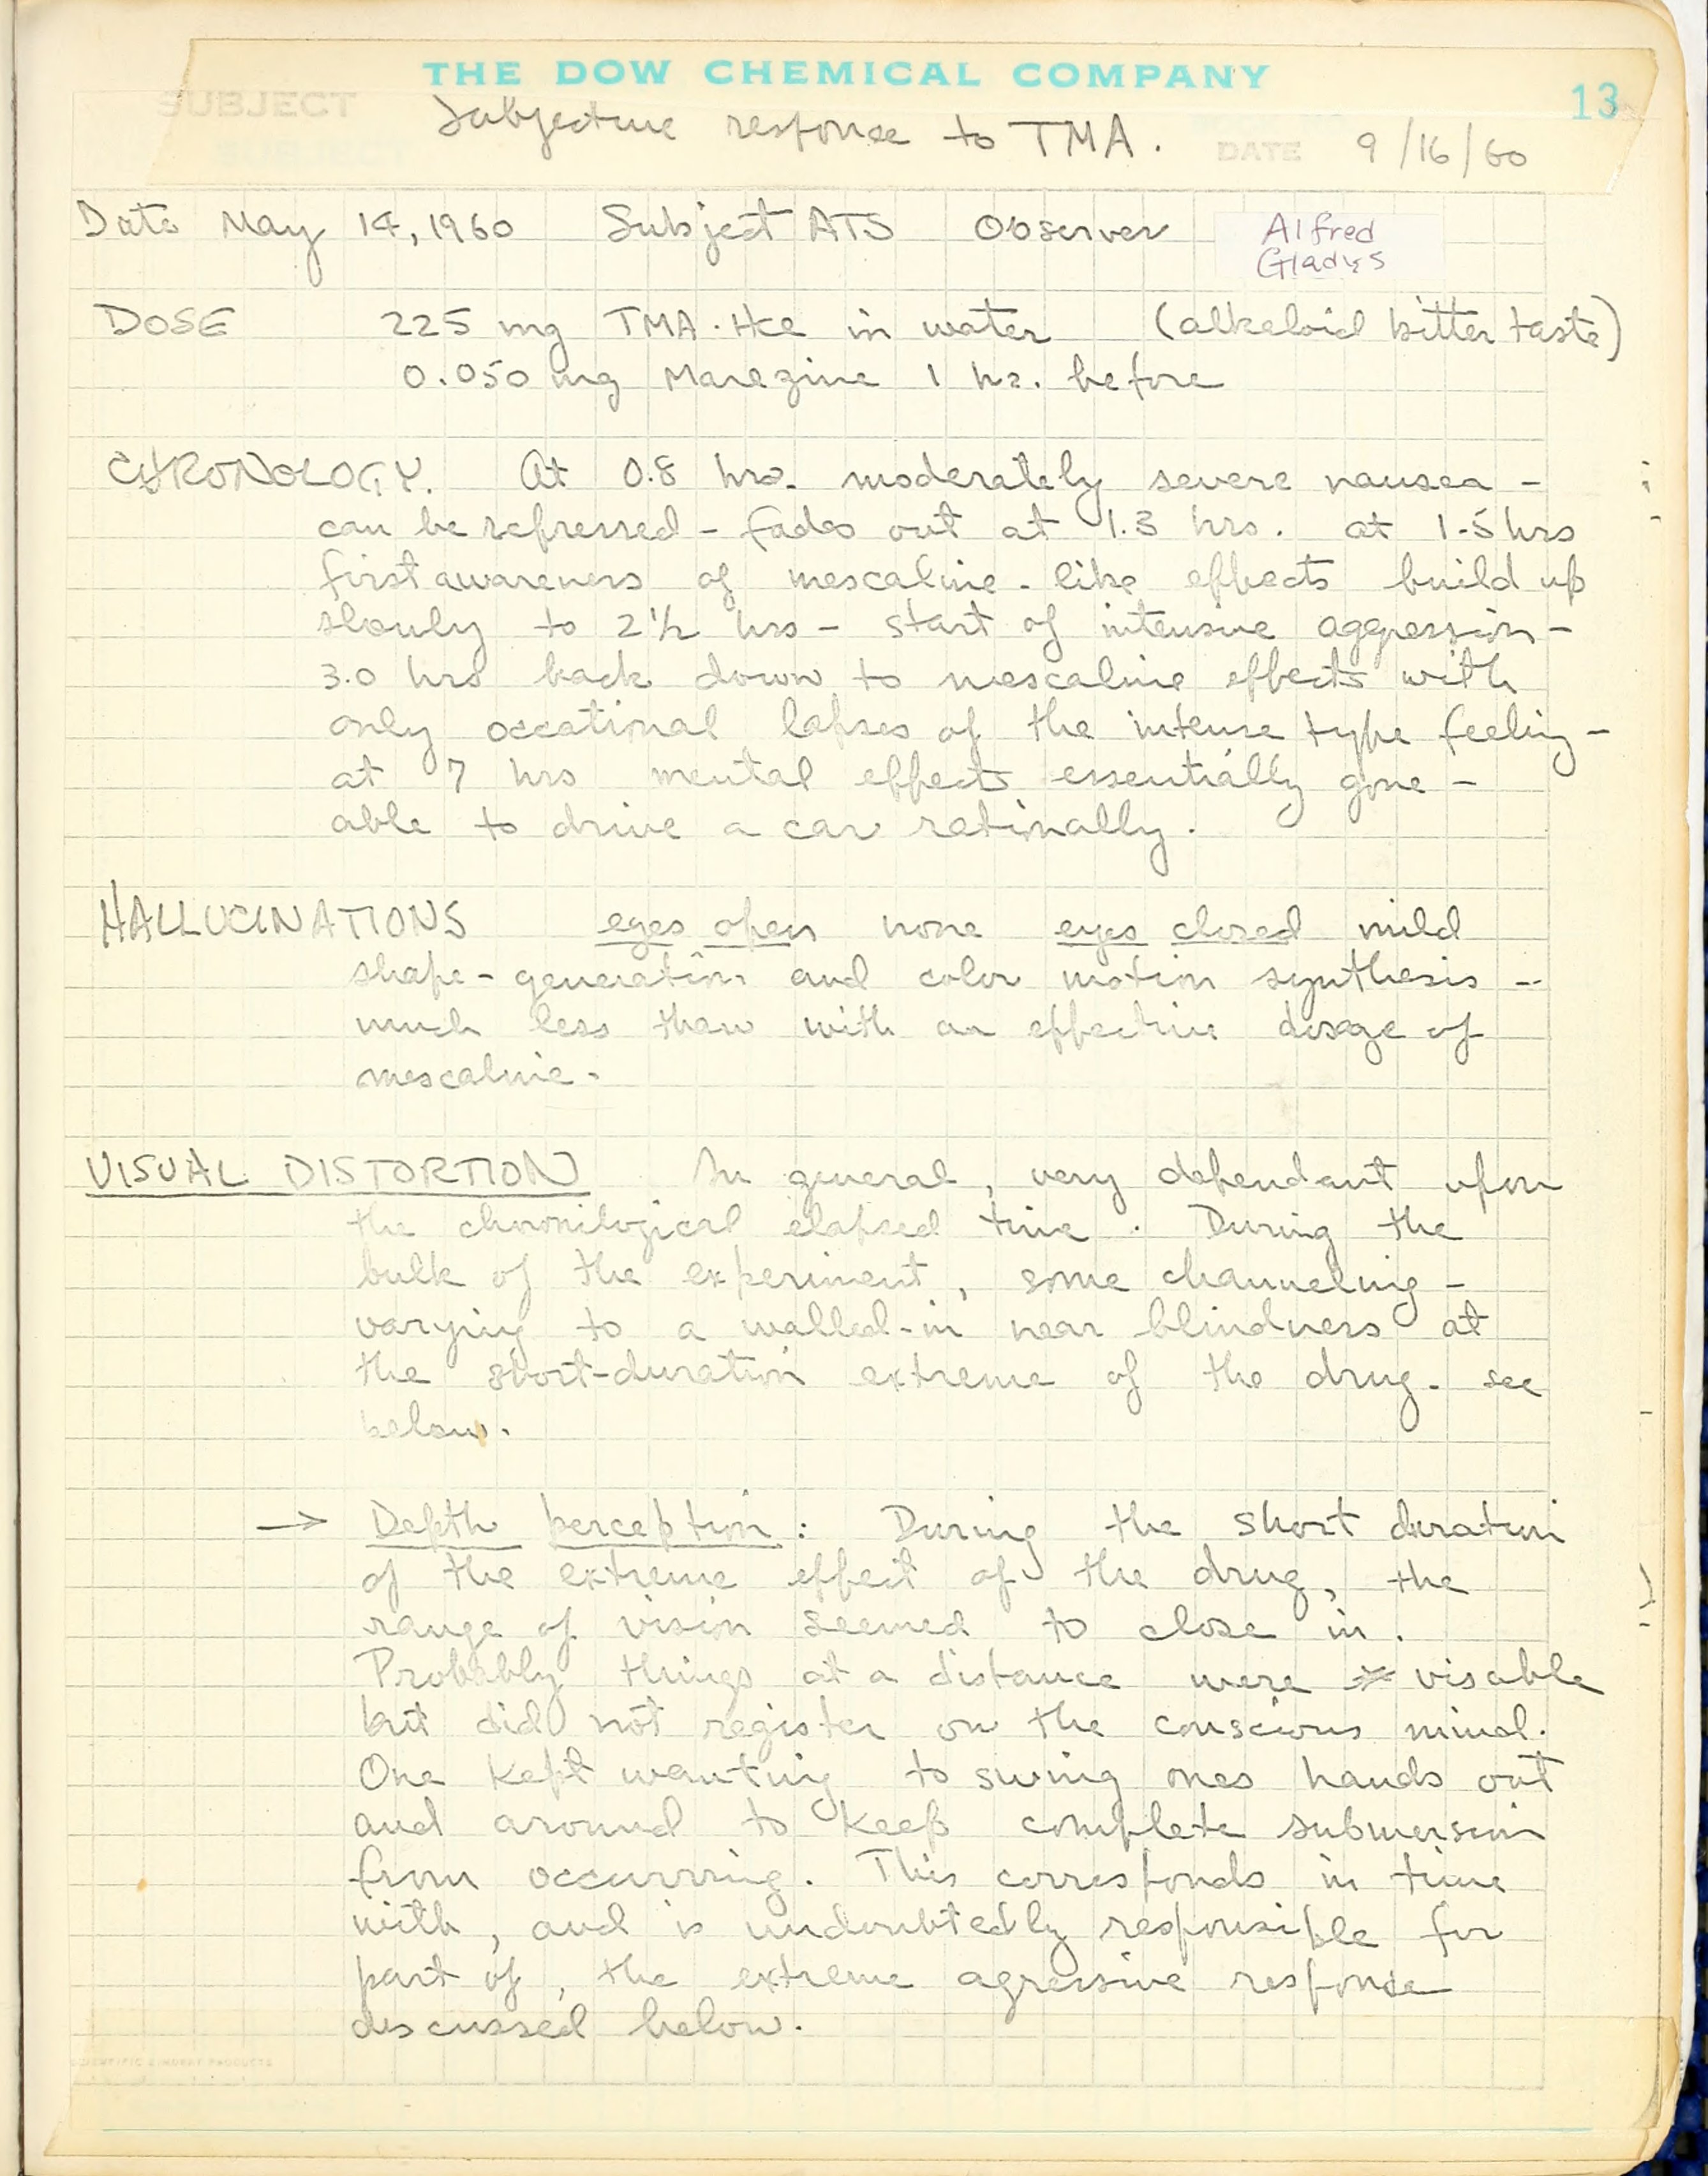 THE DOW CHEMICAL COMPANY
13
SUBJECT
Subjective response to TMA.
DATE 9/16/60
Date May 14, 1960 Subject ATS Observer Alfred
Gladys
DOSE 225 mg TMA·HCl in water (alkaloid bitter taste)
0.050 mg Marezine 1 hr. before
CHRONOLOGY. At 0.8 hrs. moderately severe nausea -
can be repressed - fades out at 1.3 hrs. at 1.5 hrs
first awareness of mescaline-like effects build up
slowly to 2½ hrs - start of intensive aggression -
3.0 hrs back down to mescaline effects with
only occational lapses of the intense type feeling -
at 7 hrs mental effects essentially gone -
able to drive a car rationally.
HALLUCINATIONS eyes open none eyes closed mild
shape-generation and color motion synthesis --
much less than with an effective dosage of
mescaline.
VISUAL DISTORTION In general, very dependant upon
the chronilogical elapsed time. During the
bulk of the experiment, some channeling -
varying to a walled-in near blindness at
the short-duration extreme of the drug. see
below.
→ Depth perception: During the short duration
of the extreme effect of the drug, the
range of vision seemed to close in.
Probably things at a distance were visable
but did not register on the conscious mind.
One kept wanting to swing ones hands out
and around to keep complete submersion
from occurring. This corresponds in time
with, and is undoubtedly responsible for
part of, the extreme agressive response
discussed below.